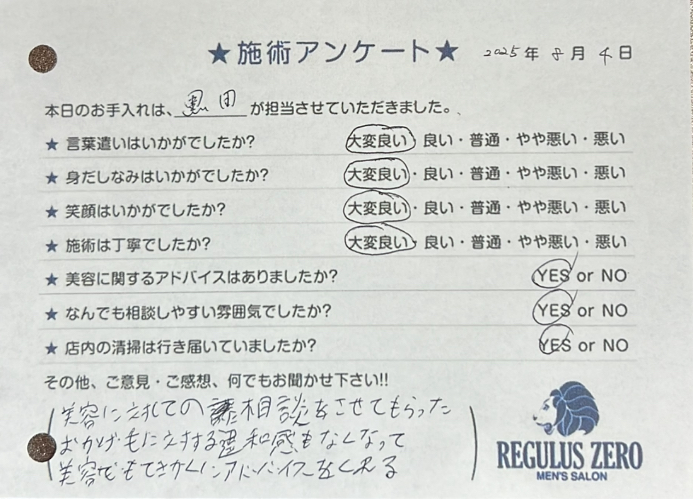 ★施術アンケート★ 2025年 8月 4日
本日のお手入れは、黒田が担当させていただきました。
★ 言葉遣いはいかがでしたか? 大変良い・良い・普通・やや悪い・悪い
★ 身だしなみはいかがでしたか? 大変良い・良い・普通・やや悪い・悪い
★ 笑顔はいかがでしたか? 大変良い・良い・普通・やや悪い・悪い
★ 施術は丁寧でしたか? 大変良い・良い・普通・やや悪い・悪い
★ 美容に関するアドバイスはありましたか? YES or NO
★ なんでも相談しやすい雰囲気でしたか? YES or NO
★ 店内の清掃は行き届いていましたか? YES or NO
その他、ご意見・ご感想、何でもお聞かせ下さい!!
美容に対しての 相談をさせてもらった
おかげ毛に対する違和感もなくなって
美容でも アドバイスをくれる
REGULUS ZERO
MEN'S SALON